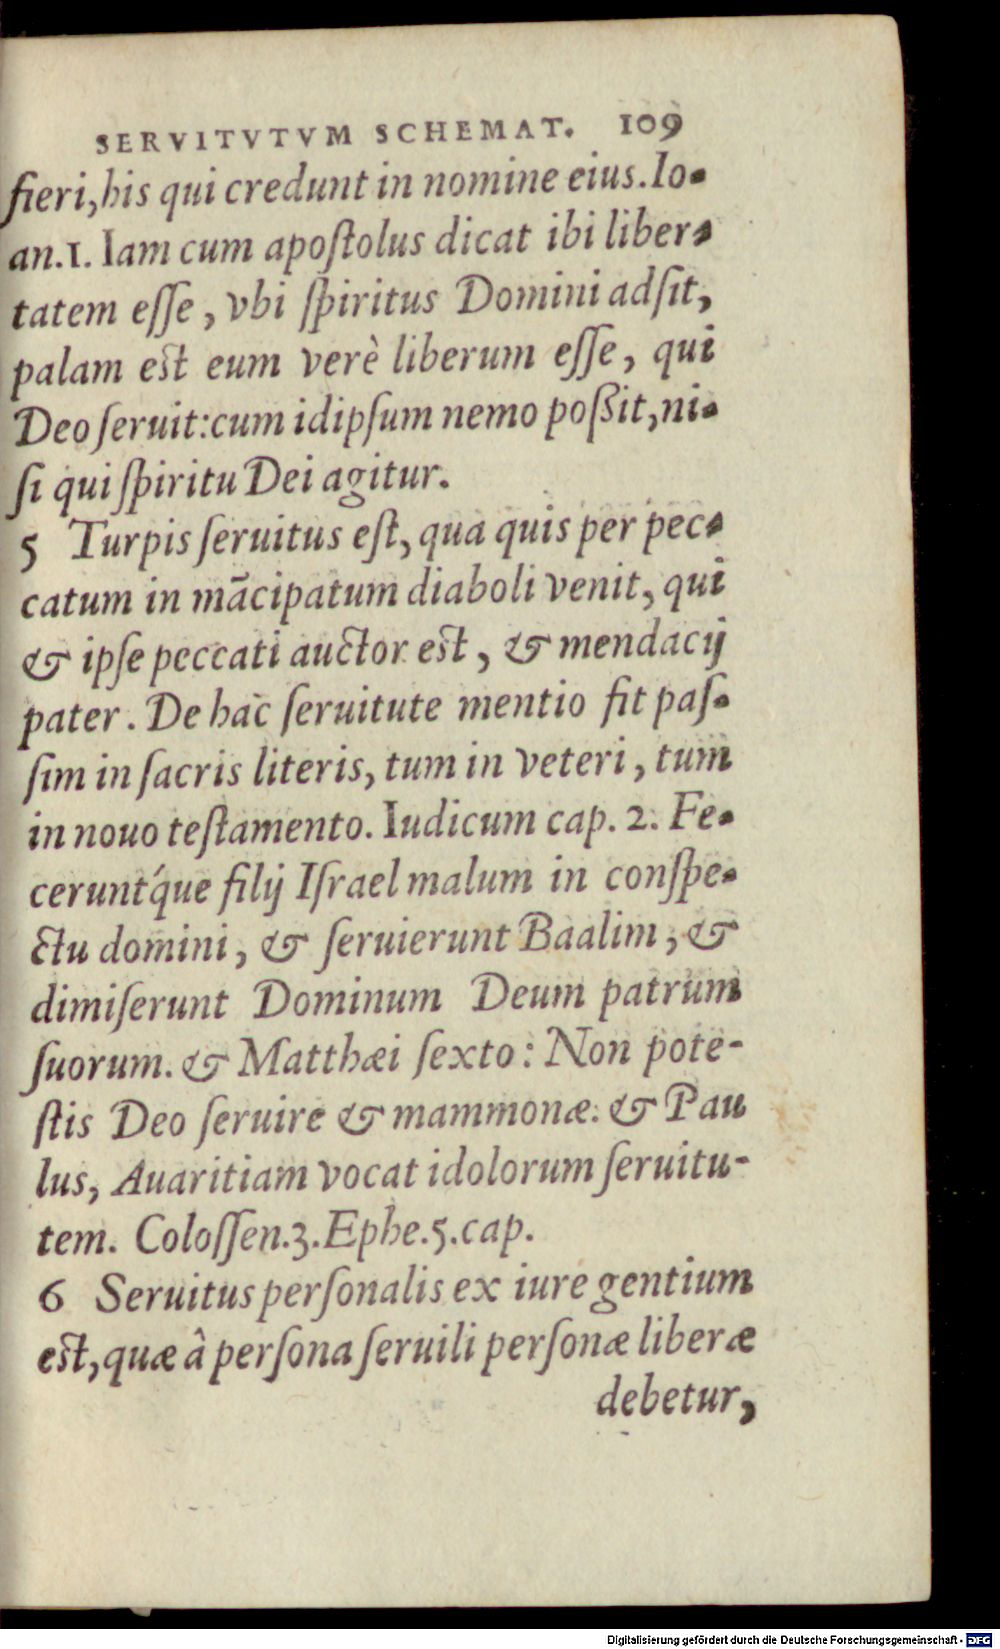 SERVITVTVM SCHEMAT. 109
fieri, his qui credunt in nomine eius. Io-
an.1. Iam cum apoſtolus dicat ibi liber-
tatem eſſe, vbi ſpiritus Domini adſit,
palam eſt eum verè liberum eſſe, qui
Deo ſeruit: cum idipſum nemo poßit, ni-
ſi qui ſpiritu Dei agitur.
5 Turpis ſeruitus eſt, qua quis per pec-
catum in mācipatum diaboli venit, qui
& ipſe peccati auctor eſt, & mendacij
pater. De hac ſeruitute mentio fit paſ-
ſim in ſacris literis, tum in veteri, tum
in nouo teſtamento. Iudicum cap. 2. Fe-
cerunt́que filij Iſrael malum in conſpe-
ctu domini, & ſeruierunt Baalim, &
dimiſerunt Dominum Deum patrum
ſuorum. & Matthæi ſexto: Non pote-
ſtis Deo ſeruire & mammonæ. & Pau
lus, Auaritiam vocat idolorum ſeruitu-
tem. Coloſſen.3. Ephe.5. cap.
6 Seruitus perſonalis ex iure gentium
eſt, quæ â perſona ſeruili perſonæ liberæ
debetur,
Digitalisierung gefördert durch die Deutsche Forschungsgemeinschaft - DFG